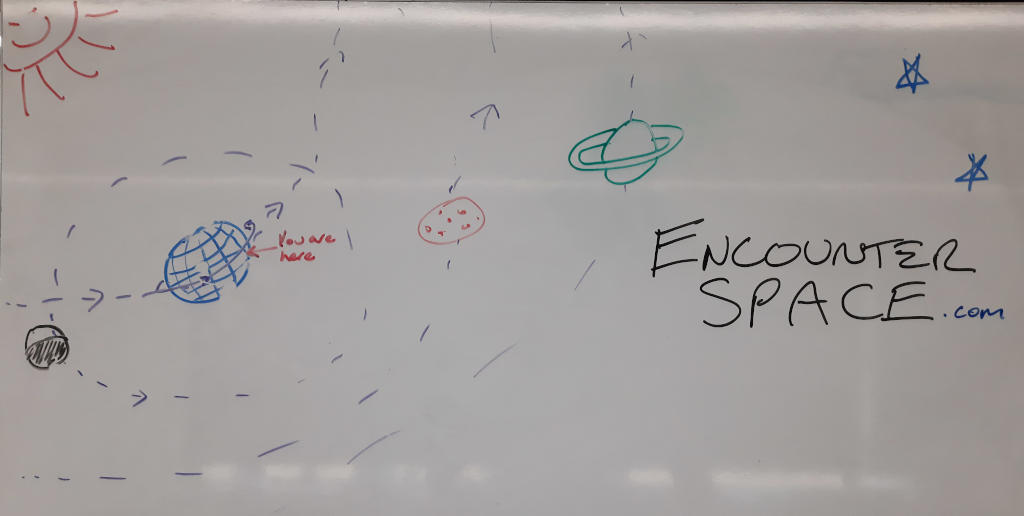 You are
here
ENCOUNTER
SPACE.com